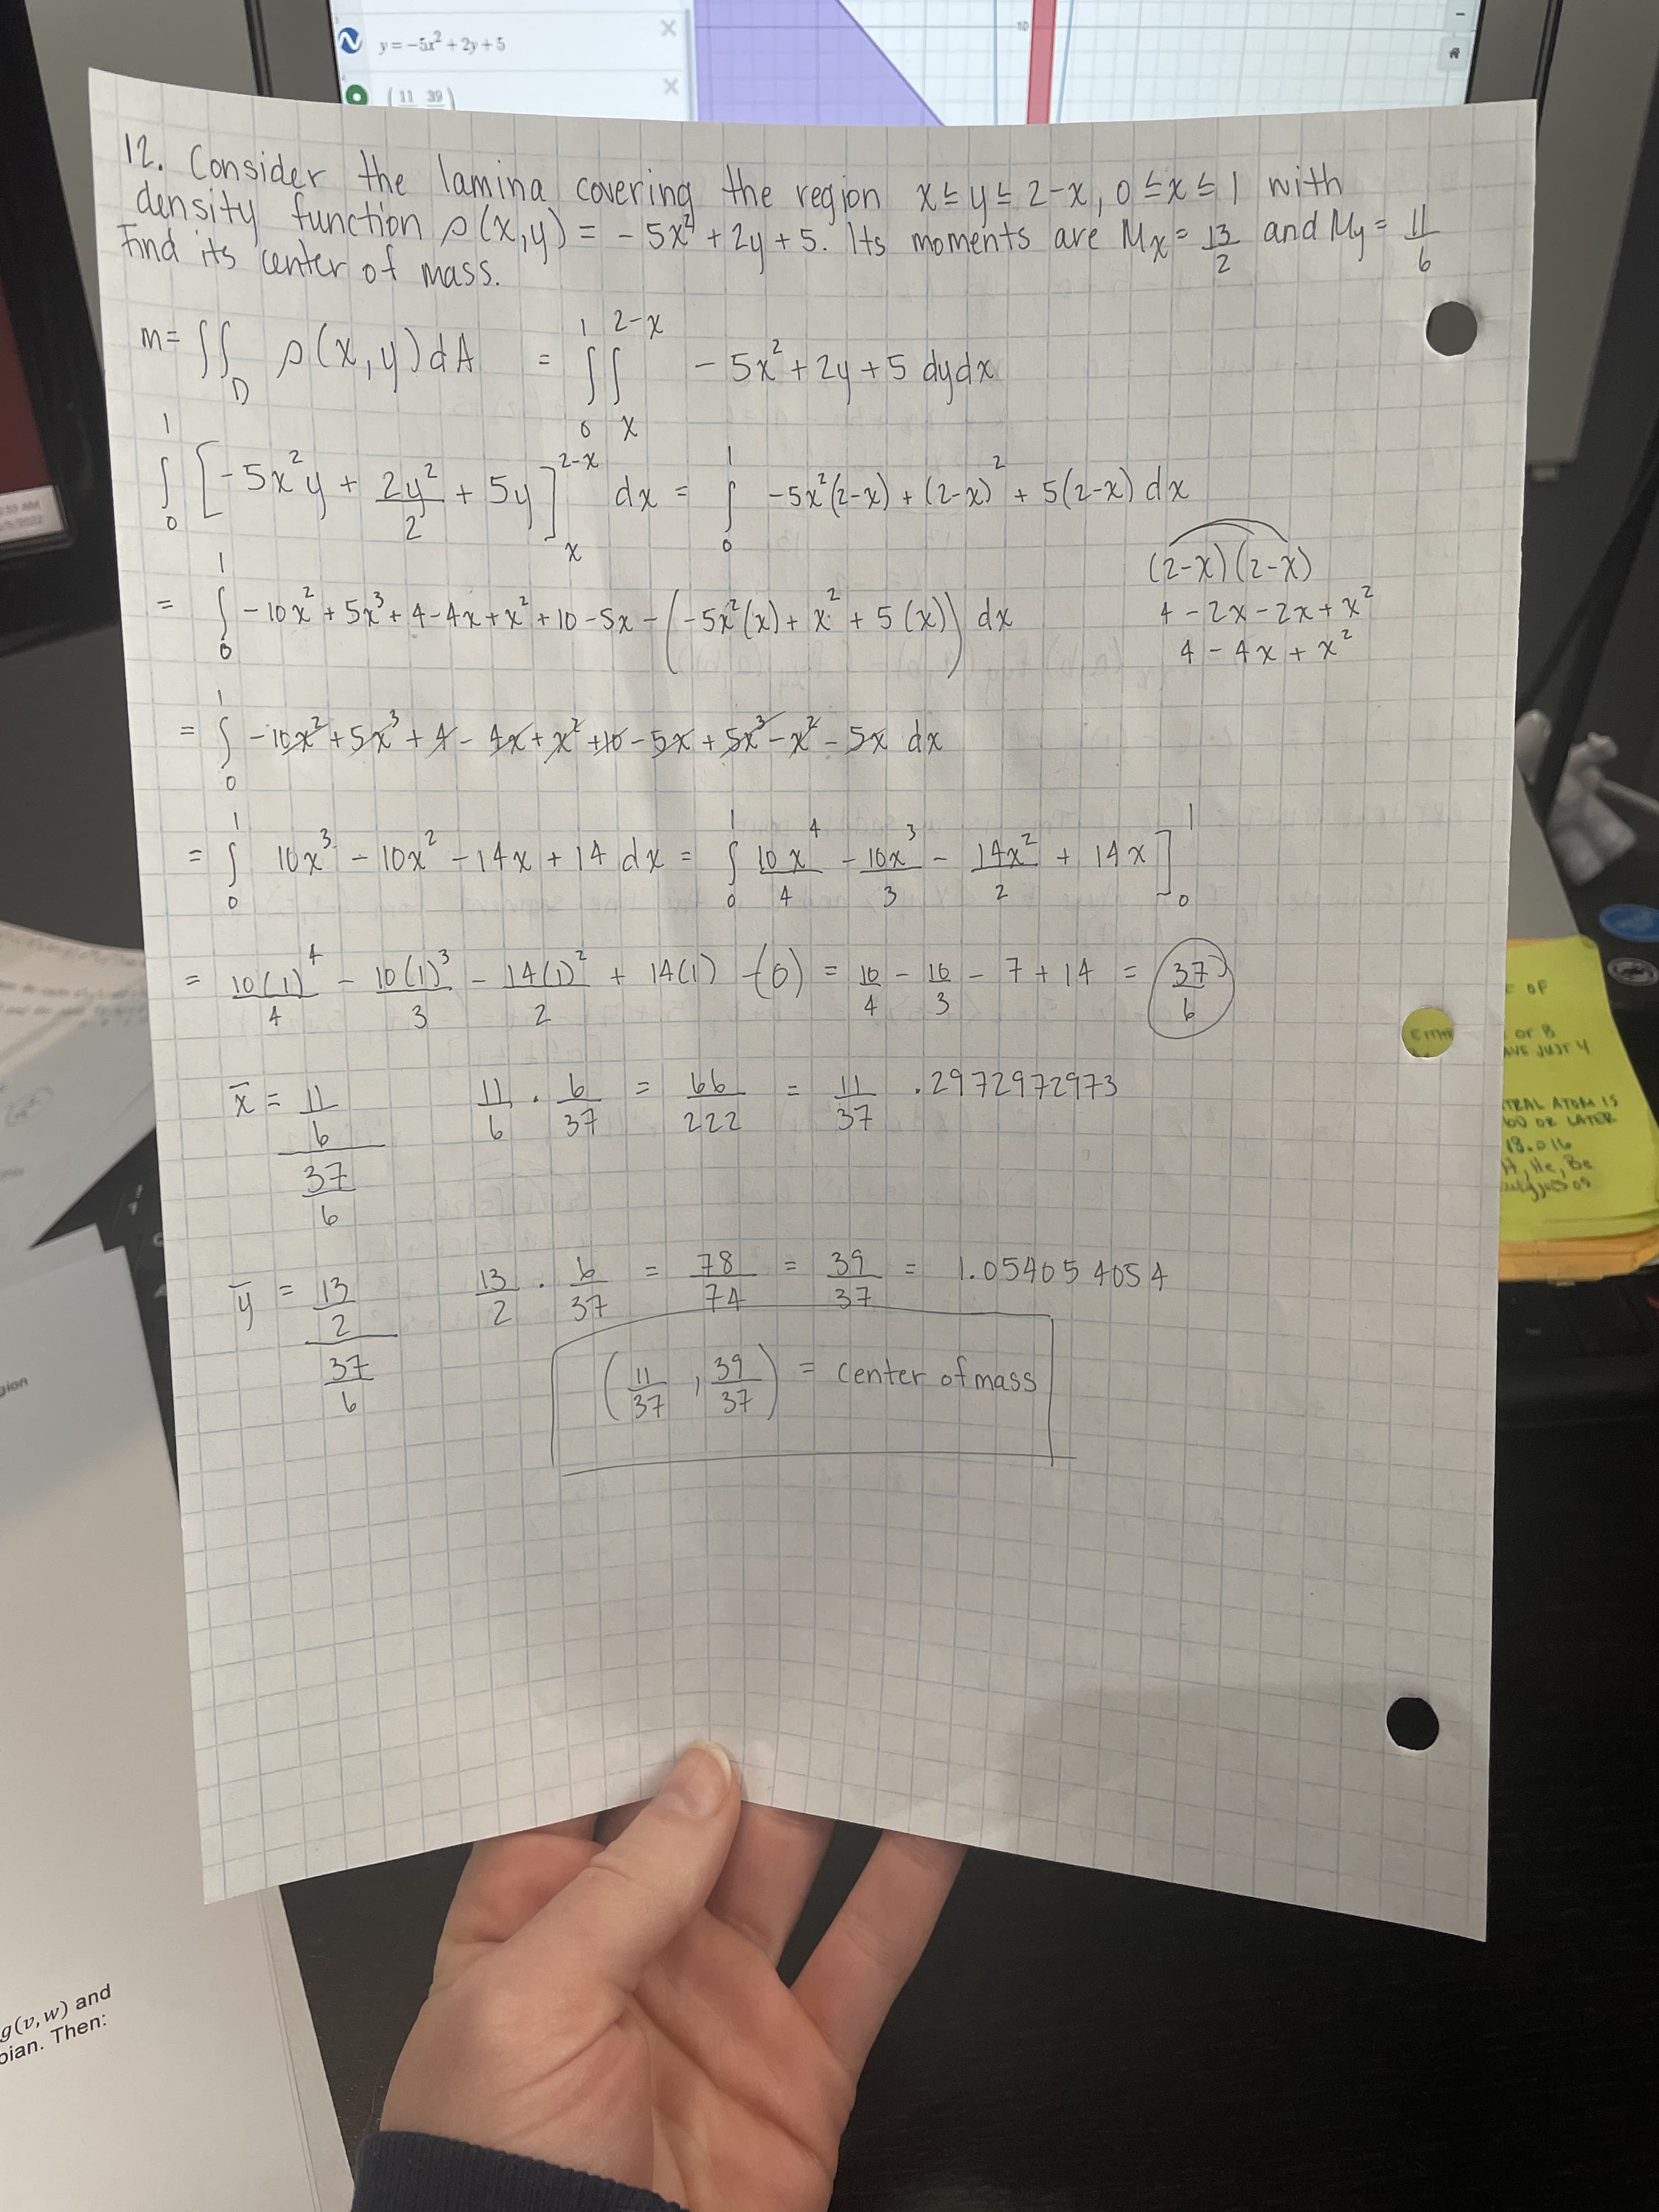 y = −5x² + 2y + 5
(11 39)
10
12. Consider the lamina covering the region x ≤ y ≤ 2−x, 0 ≤ x ≤ 1 with
density function ρ(x,y) = −5x² + 2y + 5. Its moments are Mx = 13/2 and My = 11/6
Find its center of mass.
m = ∬_D ρ(x,y) dA = ∫_0^1 ∫_x^{2−x} −5x² + 2y + 5 dy dx
∫_0^1 [−5x²y + 2y²/2 + 5y]_x^{2−x} dx = ∫_0^1 −5x²(2−x) + (2−x)² + 5(2−x) dx
(2−x)(2−x)
= ∫_0^1 −10x² + 5x³ + 4 − 4x + x² + 10 − 5x − (−5x²(x) + x² + 5(x)) dx
4 − 2x − 2x + x²
4 − 4x + x²
= ∫_0^1 −10x² + 5x³ + 4 − 4x + x² + 10 − 5x + 5x³ − x² − 5x dx
= ∫_0^1 10x³ − 10x² − 14x + 14 dx = ∫_0^1 10x⁴/4 − 10x³/3 − 14x²/2 + 14x]_0^1
= 10(1)⁴/4 − 10(1)³/3 − 14(1)²/2 + 14(1) − (0) = 10/4 − 10/3 − 7 + 14 = 37/6
x̄ = 11/6 / 37/6 11/6 · 6/37 = 66/222 = 11/37 .2972972973
ȳ = 13/2 / 37/6 13/2 · 6/37 = 78/74 = 39/37 = 1.054054054
(11/37, 39/37) = center of mass
OF
or B
AVE JUST 4
ATOM IS
OR LATER
18.016
H, He, Be
g(v, w) and
Then: